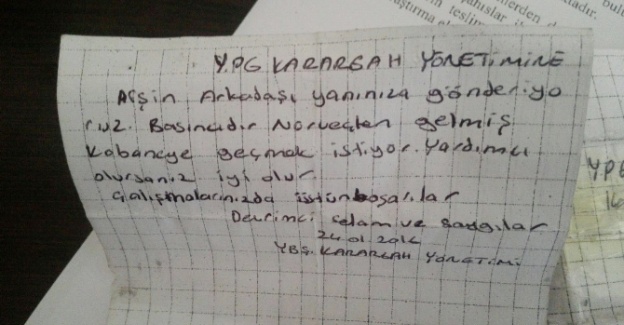 bul
nerden d
ahıslar i
teslim
ştırma
adır.
Y.PG KARARGAH YÖNETİMİNE
Afşin Arkadaşı yanınıza gönderiyo
ruz. Basıncıdır Norveçten gelmiş
Kobaneye geçmak istiyor. Yardımcı
olursanız iyi olur
Çalışmalarınızda üstün başarılar
Devrimci selam ve saygılar
24.01.2014
YBŞ. KARARGAH YÖNETİMİ
YPG